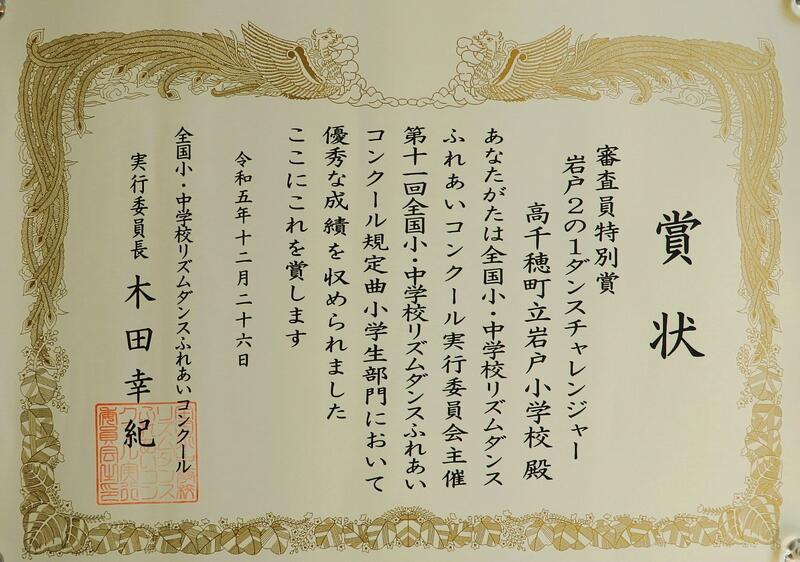 賞状
審査員特別賞
岩戸2の1ダンスチャレンジャー
高千穂町立岩戸小学校 殿
あなたがたは全国小・中学校リズムダンス
ふれあいコンクール実行委員会主催
第十一回全国小・中学校リズムダンスふれあい
コンクール規定曲小学生部門において
優秀な成績を収められました
ここにこれを賞します
令和五年十二月二十六日
全国小・中学校リズムダンスふれあいコンクール
実行委員長 木田幸紀